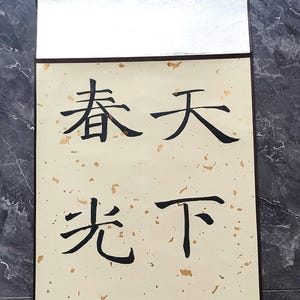 天下
春光